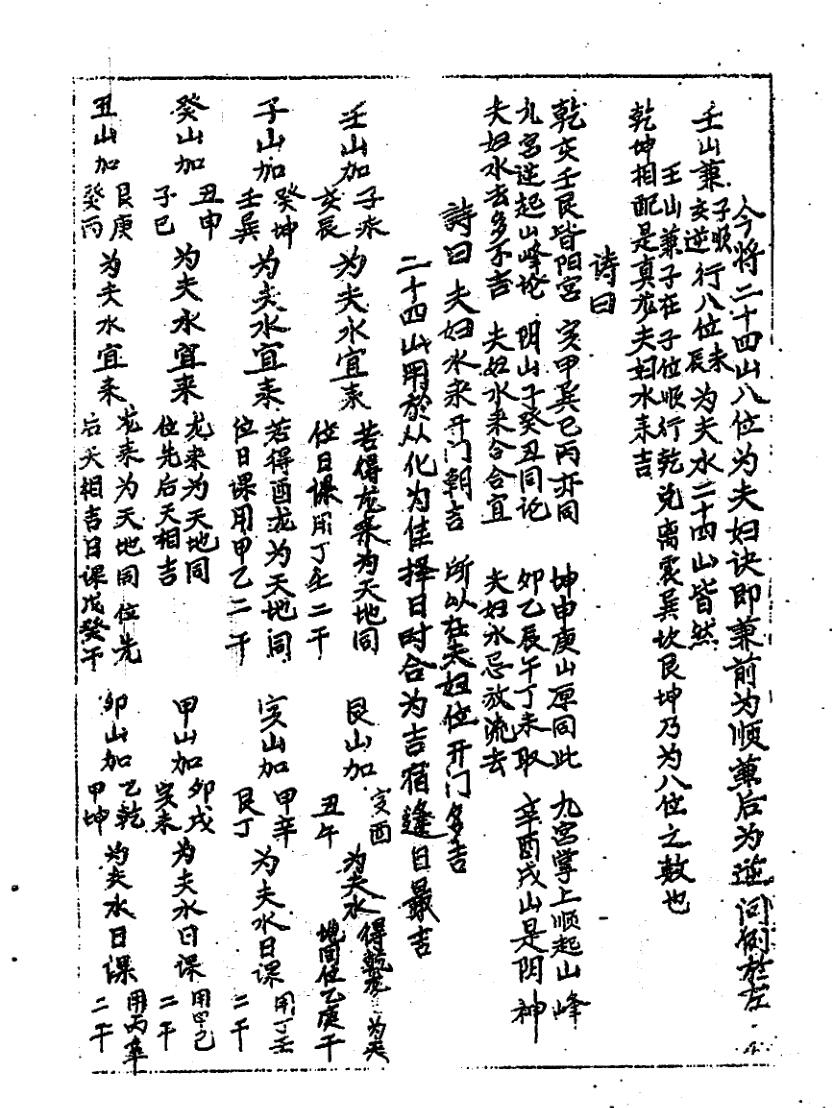 今将二十四山八位为夫妇诀即兼前为顺兼后为逆问例於左
壬山兼子顺亥逆行八位未辰为夫水二十四山皆然
壬山兼子在子位顺行乾兑离震巽坎艮坤乃为八位之数也
乾坤相配是真龙夫妇水来吉
诗曰
乾亥壬艮皆阳宫 寅甲巽巳丙亦同 坤申庚山原同此 九宫掌上顺起山峰
九宫逆起山峰论 阴山子癸丑同论 卯乙辰午丁未取 辛酉戌山是阴神
夫妇水去多不吉 夫妇水来合合宜 夫妇水忌放流去
詩曰 夫妇水来开门朝吉 所以在夫妇位开门多吉
二十四山用於从化为佳择日时合为吉宿逢日最吉
壬山加子未亥辰为夫水宜来 若得龙来为天地同位日课用丁壬二干
子山加癸坤壬巽为夫水宜来 若得酉龙为天地同位日课用甲乙二干
癸山加丑申子巳为夫水宜来 龙来为天地同位先后天相吉
丑山加艮庚癸丙为夫水宜来 龙来为天地同位先后天相吉日课戊癸干
艮山加寅酉丑午为夫水 得乾龙为天地同位乙庚干
寅山加甲辛艮丁为夫水日课用丁壬二干
甲山加卯戌寅未为夫水日课用甲己二干
卯山加乙乾甲坤为夫水日课用丙辛二干